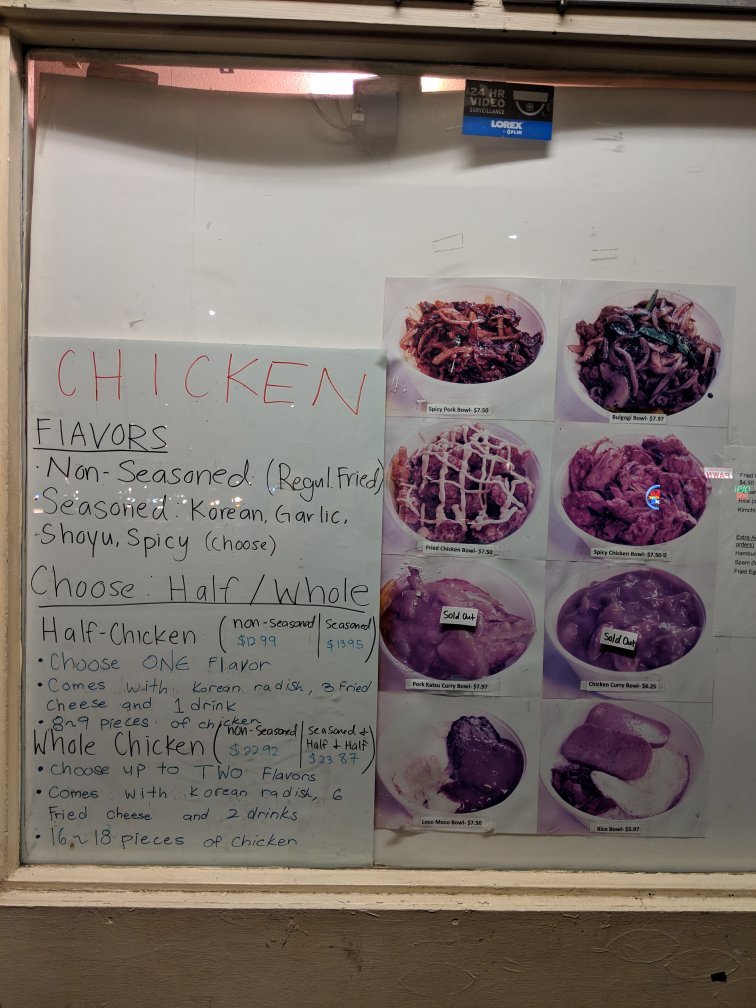 24 HR
VIDEO
SURVEILLANCE
LOREX
BY FLIR
CHICKEN
FlAVORS
· Non-Seasoned (Regul.Fried)
· Seasoned: Korean, Garlic,
Shoyu, Spicy (choose)
Choose: Half/Whole
Half-Chicken (non-seasoned | Seasoned)
$12.99 | $13.95
• Choose ONE Flavor
• Comes with Korean radish, 3 Fried
cheese and 1 drink
• 8~9 pieces of chicken
Whole Chicken (non-seasoned | Seasoned +
Half + Half)
$22.92 | $23.87
• Choose up to TWO Flavors
• Comes with Korean radish, 6
Fried cheese and 2 drinks
• 16~18 pieces of chicken
Spicy Pork Bowl- $7.50
Bulgogi Bowl- $7.97
Fried Chicken Bowl- $7.50
Spicy Chicken Bowl- $7.50
Sold Out
Pork Katsu Curry Bowl- $7.97
Sold Out
Chicken Curry Bowl- $6.25
Loco Moco Bowl- $7.50
Rice Bowl- $5.97
Fried
$4.50
Rice
Kimchi
Extra
orders)
Hambur
Spam
Fried Eg